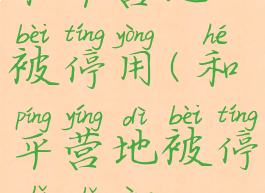 bèi tíng yòng hé
被停用(和
píng yíng dì bèi tíng
平营地被停